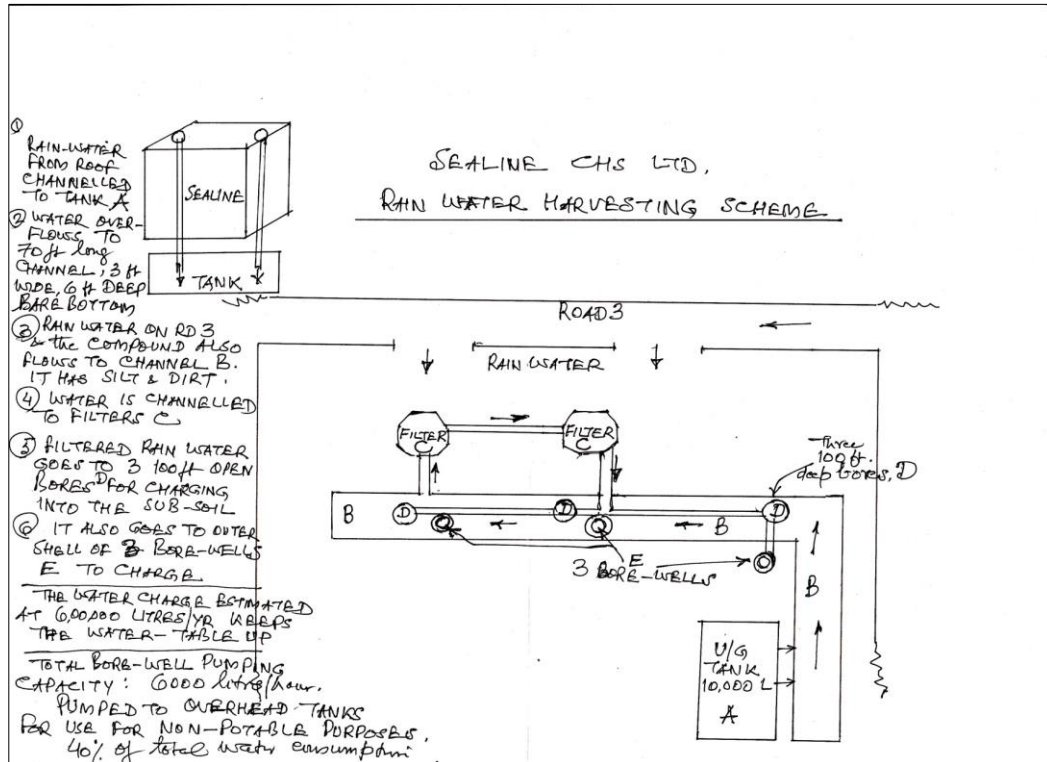 SEALINE CHS LTD.
RAIN WATER HARVESTING SCHEME
①
RAIN-WATER
FROM ROOF
CHANNELLED
TO TANK A
② WATER OVER-
FLOWS TO
70 ft long
CHANNEL, 3 ft
WIDE, 6 ft DEEP
BARE BOTTOM
③ RAIN WATER ON RD 3
& the COMPOUND ALSO
FLOWS TO CHANNEL B.
IT HAS SILT & DIRT.
④ WATER IS CHANNELLED
TO FILTERS C
⑤ FILTERED RAIN WATER
GOES TO 3 100ft OPEN
BORES D FOR CHARGING
INTO THE SUB-SOIL
⑥ IT ALSO GOES TO OUTER
SHELL OF 3 BORE-WELLS
E TO CHARGE
THE WATER CHARGE ESTIMATED
AT 6,00,000 LITRES/YR KEEPS
THE WATER-TABLE UP
TOTAL BORE-WELL PUMPING
CAPACITY: 6000 litres/hour.
PUMPED TO OVERHEAD TANKS
FOR USE FOR NON-POTABLE PURPOSES.
40% of total water consumption.
SEALINE
TANK
ROAD 3
RAIN WATER
FILTER
C
FILTER
C
Three
100 ft.
deep bores, D
B
D
D
D
B
E
3 BORE-WELLS
B
U/G
TANK
10,000 L
A